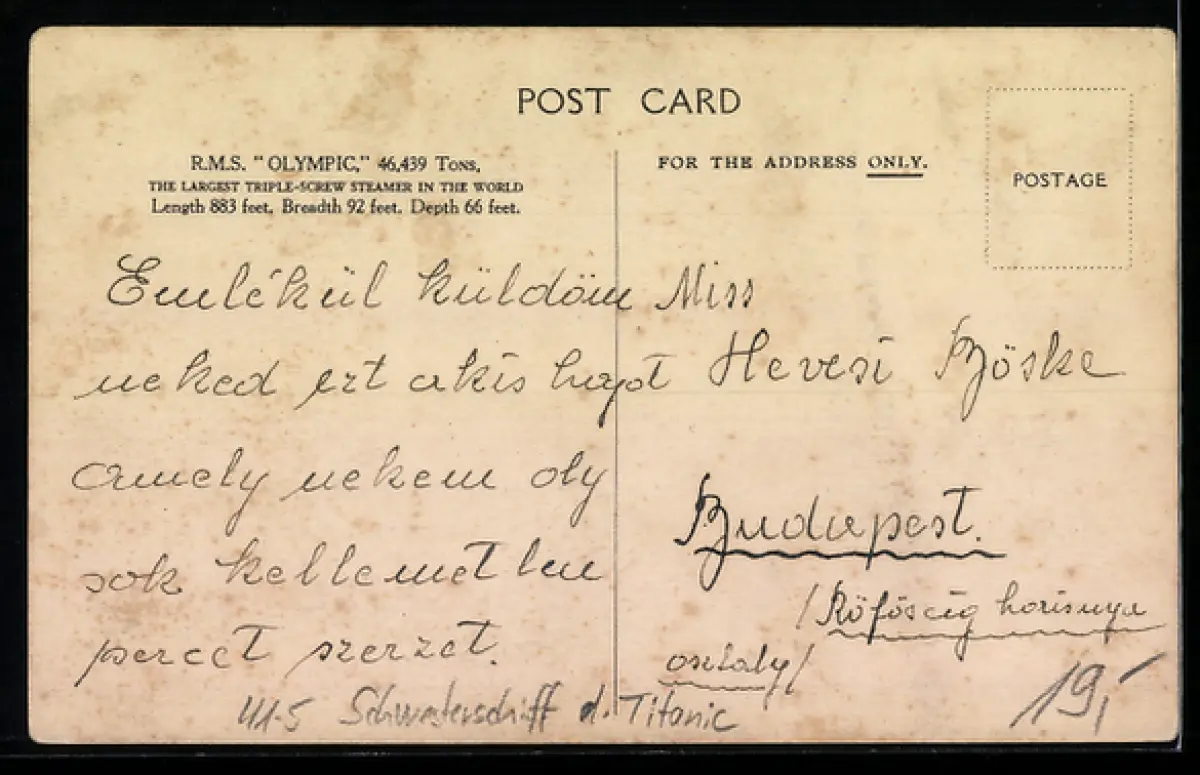 POST CARD
R.M.S. "OLYMPIC," 46,439 Tons,
THE LARGEST TRIPLE-SCREW STEAMER IN THE WORLD
Length 883 feet. Breadth 92 feet. Depth 66 feet.
FOR THE ADDRESS ONLY.
POSTAGE
Emlékül küldöm
neked ezt a kis hajót
amely nekem oly
sok kellemetlen
percet szerzet.
Miss
Hevesi Böske
Budapest.
/Röföscég harisnya
osztály/
41-5 Schwesterschiff d. Titanic
19,-